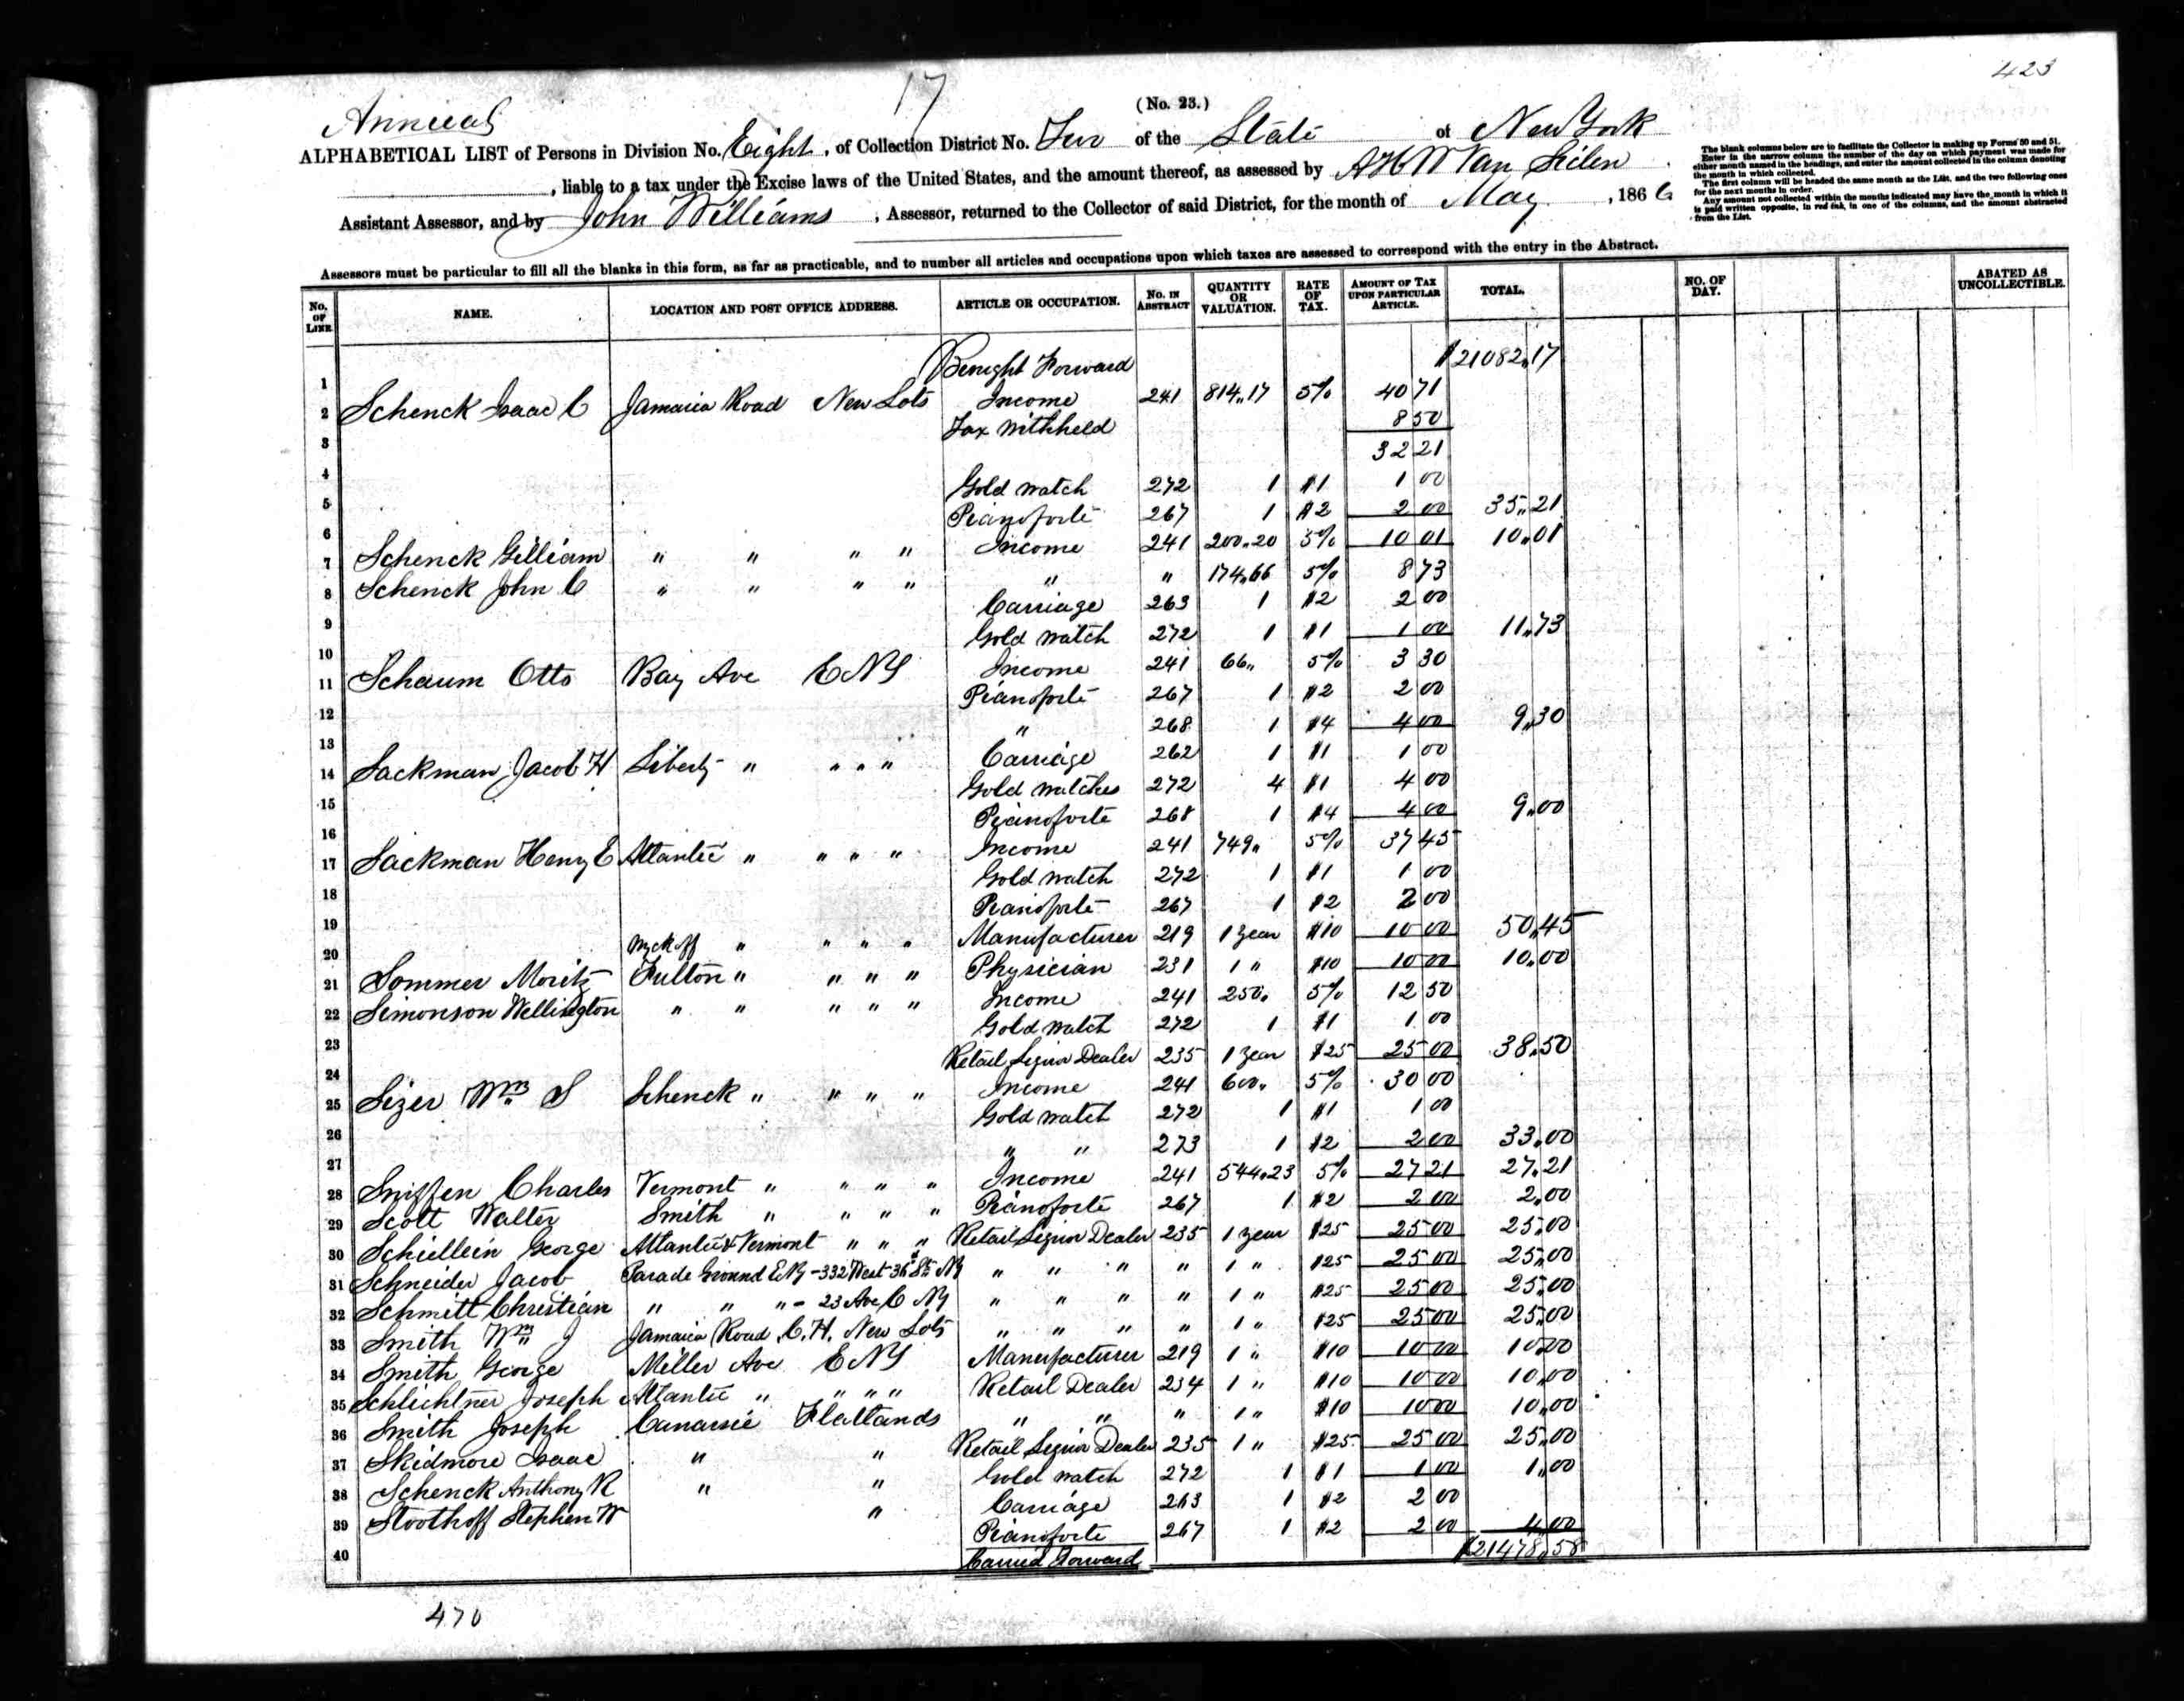 423
17
(No. 23.)
Annual
ALPHABETICAL LIST of Persons in Division No. Eight, of Collection District No. Two of the State of New York
, liable to a tax under the Excise laws of the United States, and the amount thereof, as assessed by A H W Van Siclen
Assistant Assessor, and by John Williams, Assessor, returned to the Collector of said District, for the month of May, 1866
The blank columns below are to facilitate the Collector in making up Forms 50 and 51.
Enter in the narrow column the number of the day on which payment was made for
either month named in the headings, and enter the amount collected in the column denoting
the month in which collected.
The first column will be headed the same month as the List, and the two following ones
for the next months in order.
Any amount not collected within the months indicated may have the month in which it
is paid written opposite, in red ink, in one of the columns, and the amount abstracted
from the List.
Assessors must be particular to fill all the blanks in this form, as far as practicable, and to number all articles and occupations upon which taxes are assessed to correspond with the entry in the Abstract.
No. OF LINE. NAME. LOCATION AND POST OFFICE ADDRESS. ARTICLE OR OCCUPATION. No. IN ABSTRACT QUANTITY OR VALUATION. RATE OF TAX. AMOUNT OF TAX UPON PARTICULAR ARTICLE. TOTAL. NO. OF DAY. ABATED AS UNCOLLECTIBLE.
Brought Forward $21082.17
1 Schenck Isaac C Jamaica Road New Lots Income 241 814.17 5% 40 71
2 Tax withheld 8 50
3 32 21
4 Gold watch 272 1 $1 1 00
5 Pianoforte 267 1 $2 2 00 35.21
6 Schenck Gilliam " " " " Income 241 200.20 5% 10 01 10.01
7 Schenck John C " " " " " " 174.66 5% 8 73
8 Carriage 263 1 $2 2 00
9 Gold watch 272 1 $1 1 00 11.73
10 Schaum Otto Bay Ave E NY Income 241 66" 5% 3 30
11 Pianoforte 267 1 $2 2 00
12 " 268 1 $4 4 00 9.30
13 Sackman Jacob H Liberty " " " " Carriage 262 1 $1 1 00
14 Gold watches 272 4 $1 4 00
15 Pianoforte 268 1 $4 4 00 9.00
16 Sackman Henry E Atlantic " " " " Income 241 749" 5% 37 45
17 Gold watch 272 1 $1 1 00
18 Pianoforte 267 1 $2 2 00
19 Wyckoff " " " " Manufacturer 219 1 year $10 10 00 50.45
20 Sommer Moritz Fulton " " " " Physician 231 1 " $10 10 00 10.00
21 Simonson Wellington " " " " " Income 241 250" 5% 12 50
22 Gold watch 272 1 $1 1 00
23 Retail Liquor Dealer 235 1 year $25 25 00 38.50
24 Sizer Wm S Schenck " " " " Income 241 600" 5% 30 00
25 Gold watch 272 1 $1 1 00
26 " " 273 1 $2 2 00 33.00
27 Sniffen Charles Vermont " " " " Income 241 544.23 5% 27 21 27.21
28 Scott Walter Smith " " " " Pianoforte 267 1 $2 2 00 2.00
29 Schiellein George Atlantic & Vermont " " " Retail Liquor Dealer 235 1 year $25 25 00 25.00
30 Schneider Jacob Parade Ground E NY - 332 West 36th St. NY " " " " 1 " $25 25 00 25.00
31 Schmitt Christian " " " - 23 Ave C NY " " " " 1 " $25 25 00 25.00
32 Smith Wm J Jamaica Road C.H. New Lots " " " " 1 " $25 25 00 25.00
33 Smith George Miller Ave E NY Manufacturer 219 1 " $10 10 00 10.00
34 Schlichtner Joseph Atlantic " " " " Retail Dealer 234 1 " $10 10 00 10.00
35 Smith Joseph Canarsie Flatlands " " " 1 " $10 10 00 10.00
36 Skidmore Isaac " " Retail Liquor Dealer 235 1 " $25 25 00 25.00
37 Schenck Anthony R " " Gold watch 272 1 $1 1 00 1.00
38 Stoothoff Stephen W " Carriage 263 1 $2 2 00
39 Pianoforte 267 1 $2 2 00 4.00
40 Carried Forward $21478.58
470